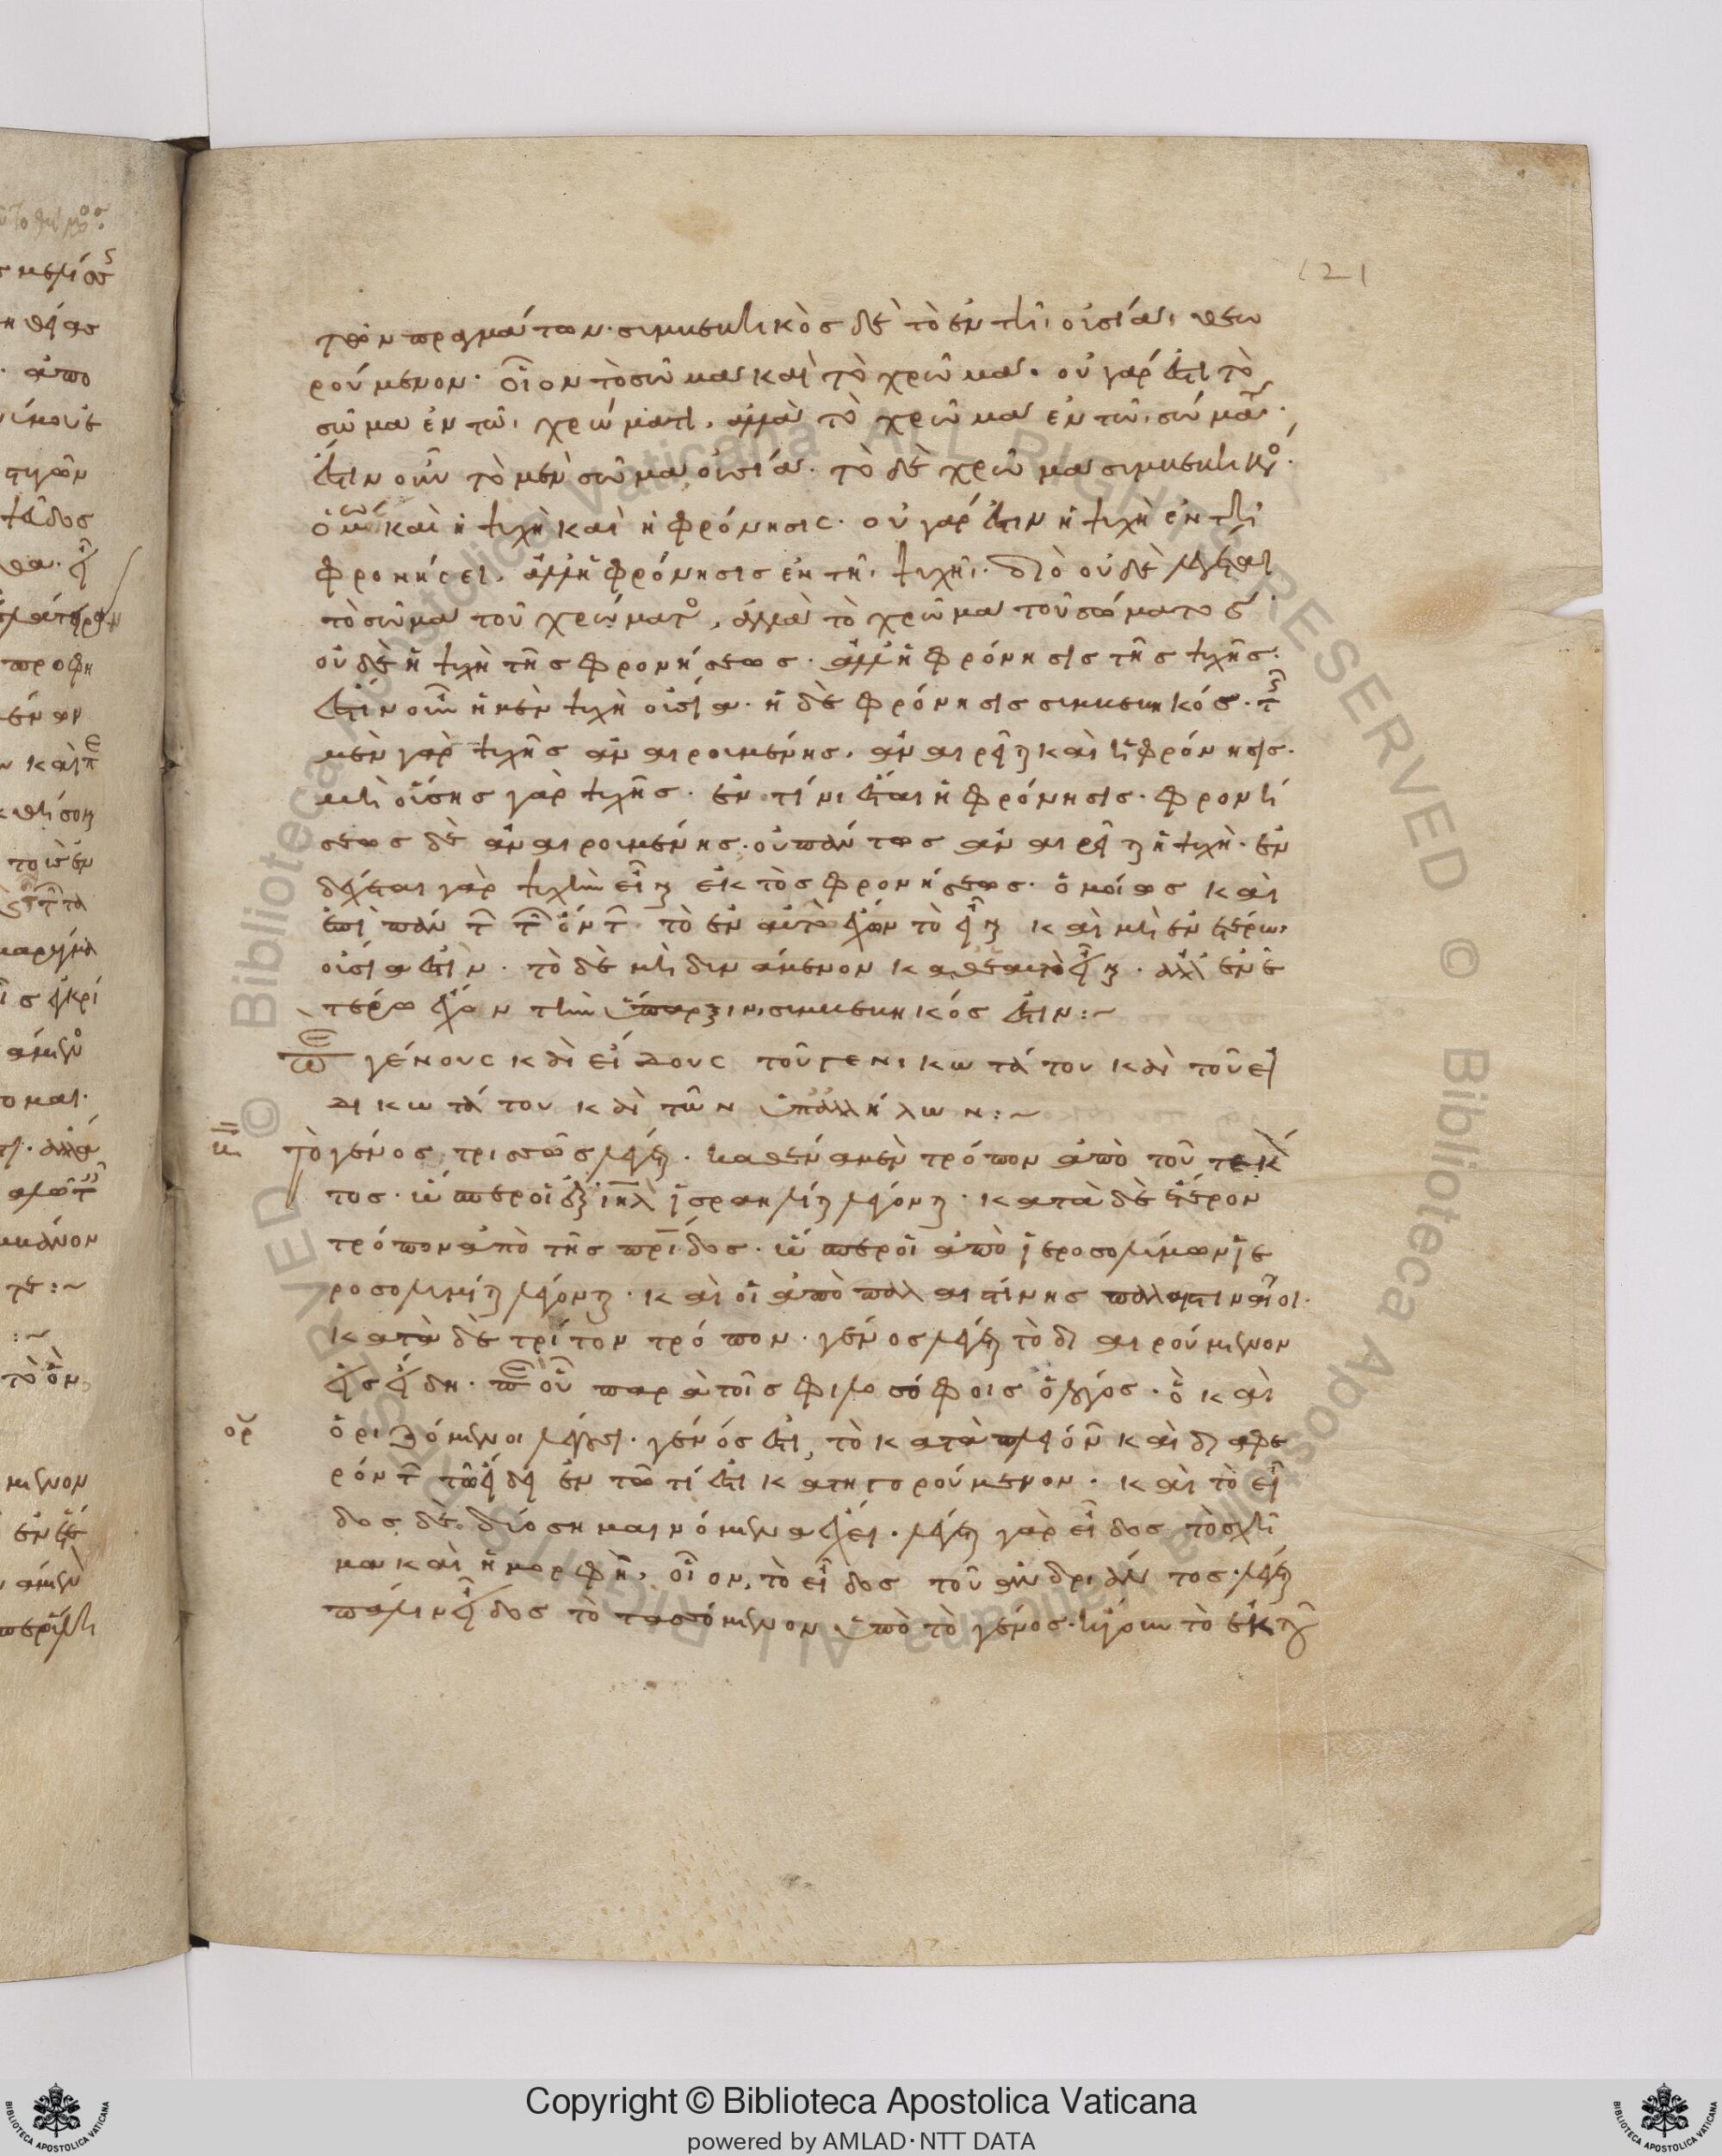 121
τῶν πραγμάτων· συμβεβηκὸς δὲ τὸ ἐν τῆι οὐσίαι θεω
ρούμενον· οἷον τὸ σῶμα καὶ τὸ χρῶμα· οὐ γάρ ἐστι τὸ
σῶμα ἐν τῶι χρώματι, ἀλλὰ τὸ χρῶμα ἐν τῶι σώματι·
ἔστιν οὖν τὸ μὲν σῶμα οὐσία· τὸ δὲ χρῶμα συμβεβηκός·
ὁμοίως καὶ ἡ ψυχὴ καὶ ἡ φρόνησις· οὐ γάρ ἐστιν ἡ ψυχὴ ἐν τῆι
φρονήσει, ἀλλ' ἡ φρόνησις ἐν τῆι ψυχῆι· διὸ οὐδὲ λέγεται
τὸ σῶμα τοῦ χρώματος, ἀλλὰ τὸ χρῶμα τοῦ σώματος
οὐδὲ ἡ ψυχὴ τῆς φρονήσεως· ἀλλ' ἡ φρόνησις τῆς ψυχῆς·
ἔστιν οὖν ἡ μὲν ψυχὴ οὐσία· ἡ δὲ φρόνησις συμβεβηκός· τῆς
μὲν γὰρ ψυχῆς ἀναιρουμένης, ἀναιρεῖται καὶ ἡ φρόνησις·
μὴ οὔσης γὰρ ψυχῆς· ἐν τίνι ἔσται ἡ φρόνησις· φρονή
σεως δὲ ἀναιρουμένης· οὐ πάντως ἀναιρεῖται ἡ ψυχὴ· ἐν
δέχεται γὰρ ψυχὴν εἶναι ἐκτὸς φρονήσεως· ὁμοίως καὶ
ἐπὶ πάντων τῶν ὄντων τὸ ἐν αὐτῷ ἔχον τὸ εἶναι καὶ μὴ ἐν ἑτέρωι
οὐσία ἐστίν· τὸ δὲ μὴ δυνάμενον καθ' ἑαυτὸ εἶναι· ἀλλ' ἐν ἑ
τέρω ἔχον τὴν ὕπαρξιν, συμβεβηκός ἐστιν:~
Περὶ γένους καὶ εἴδους τοῦ γενικωτάτου καὶ τοῦ εἰ
δικωτάτου καὶ τῶν ὑπαλλήλων:~
Τὸ γένος τρισσῶς λέγεται· καθ' ἕνα μὲν τρόπον ἀπὸ τοῦ τεκόν
τος· ὥσπερ οἱ ἐξ ἰηλ ἰσραηλῖται λέγονται· κατὰ δὲ ἕτερον
τρόπον ἀπὸ τῆς πρίδος· ὥσπερ οἱ ἀπὸ ἱεροσολύμων ἱε
ροσολυμῖται λέγονται· καὶ οἱ ἀπὸ παλαιστίνης παλαιστιναῖοι·
κατὰ δὲ τρίτον τρόπον· γένος λέγεται τὸ διαιρούμενον
εἰς εἴδη· περὶ οὗ παρὰ τοῖς φιλοσόφοις ὁ λόγος· ὃ καὶ
ορ ὁριζόμενοι λέγουσι· γένος ἐστι, τὸ κατὰ πλειόνων καὶ διαφε
ρόντων τῷ εἴδει ἐν τῷ τί ἐστι κατηγορούμενον· καὶ τὸ εἶ
δος δὲ δύο σημαινόμενα ἔχει· λέγεται γὰρ εἶδος τὸ σχῆ
μα καὶ ἡ μορφή, οἷον, τὸ εἶδος τοῦ ἀνδριάντος· λέγεται
πάλιν εἶδος τὸ τασσόμενον ὑπὸ τὸ γένος· ἤγουν τὸ ἐκ τοῦ